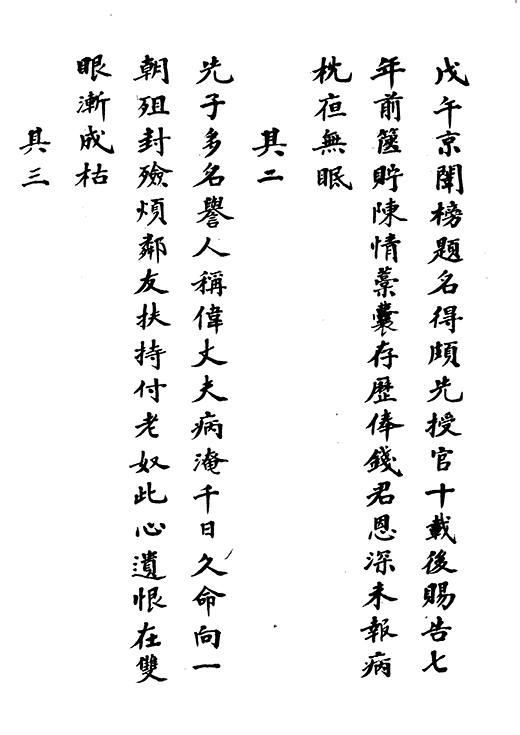 戊午京闈榜題名得頗先授官十載後賜告七
年前篋貯陳情藁囊存歷俸錢君恩深未報病
枕夜無眠
其二
先子多名譽人稱偉丈夫病淹千日久命向一
朝殂封殮煩鄰友扶持付老奴此心遺恨在雙
眼漸成枯
其三